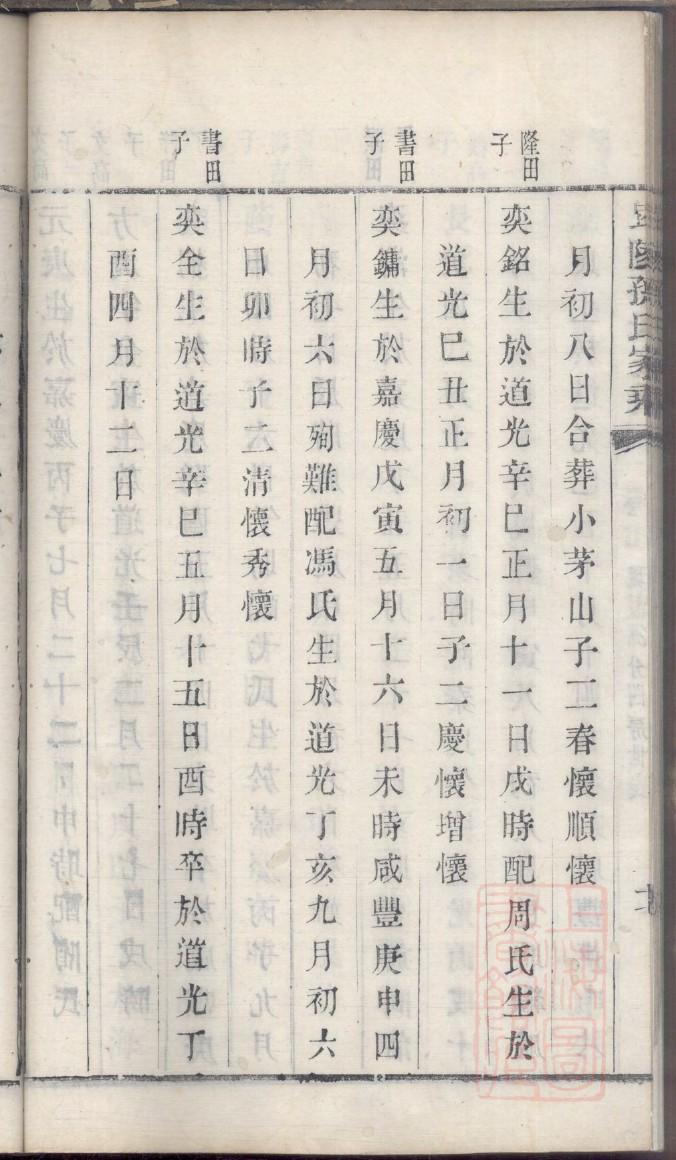 毘陵孫氏家乘
月初八日合葬小茅山子二春懷順懷
隆田子
奕銘生於道光辛巳正月十一日戌時配周氏生於
道光己丑正月初一日子二慶懷增懷
書田子
奕鏞生於嘉慶戊寅五月十六日未時咸豐庚申四
月初六日殉難配馮氏生於道光丁亥九月初六
日卯時子二清懷秀懷
書田子
奕全生於道光辛巳五月十五日酉時卒於道光丁
酉四月十二日